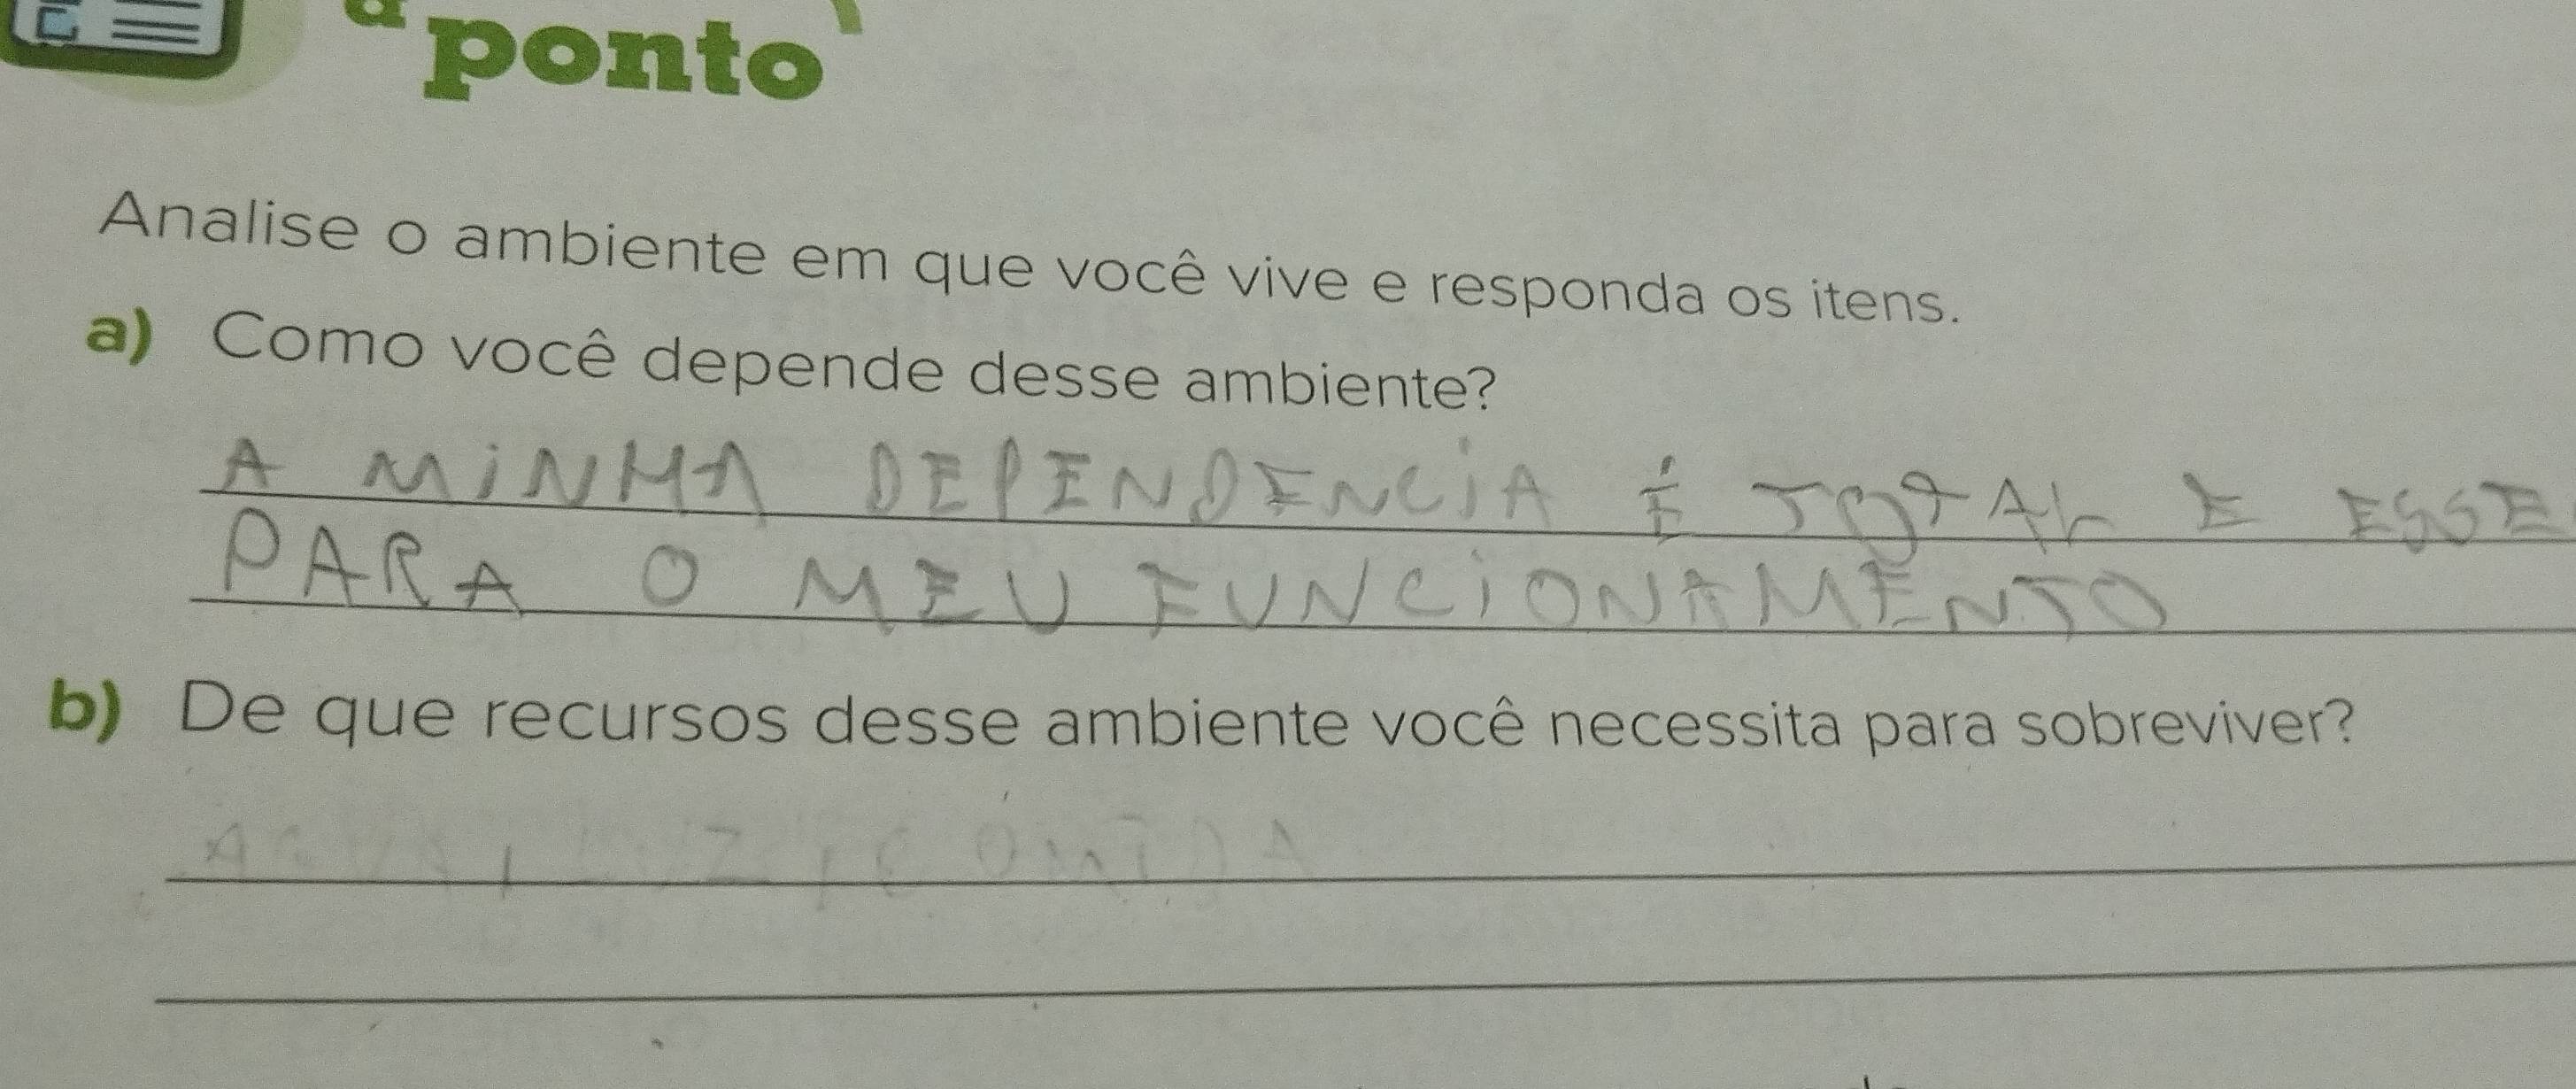 ponto
Analise o ambiente em que você vive e responda os itens.
a) Como você depende desse ambiente?
A MINHA DEPENDENCIA É TOTAL E ESSE
PARA O MEU FUNCIONAMENTO
b) De que recursos desse ambiente você necessita para sobreviver?
AGUA, LUZ, COMIDA